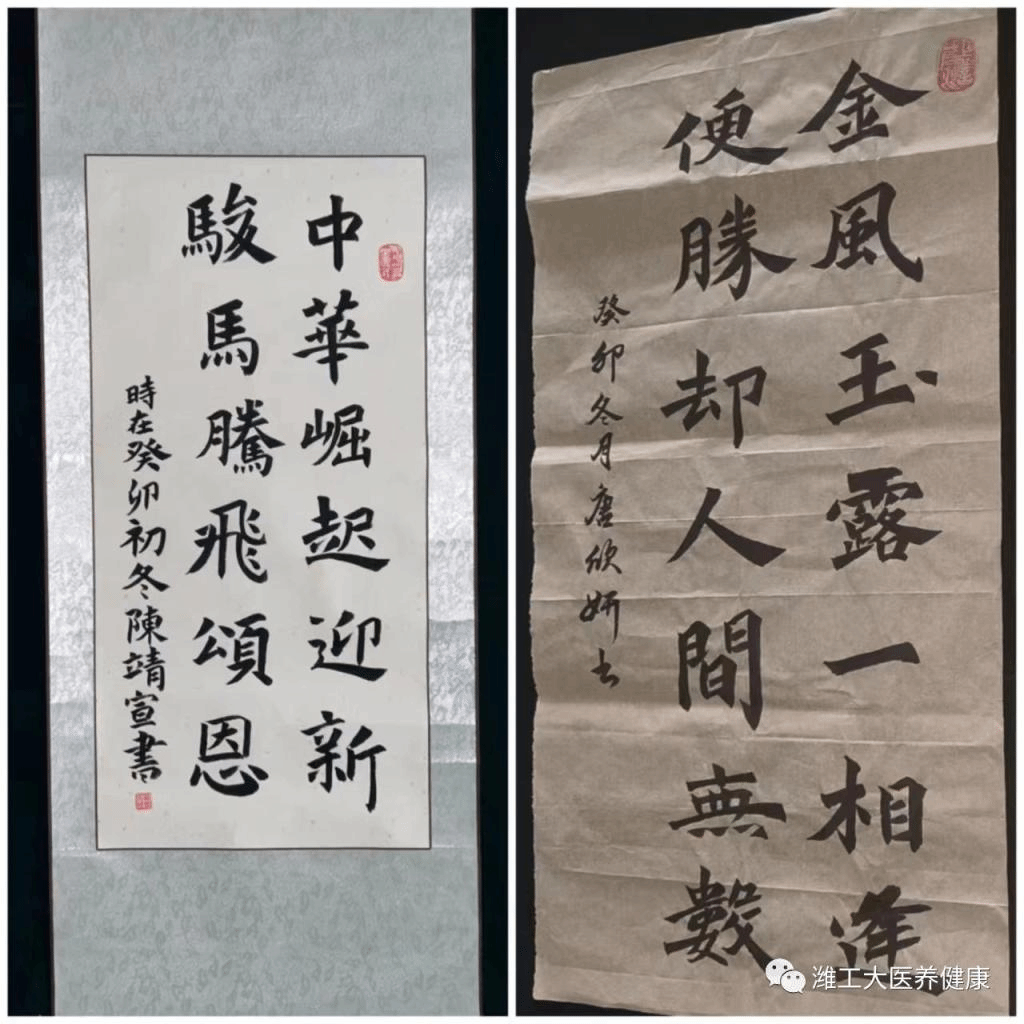 中華崛起迎新
駿馬騰飛頌恩
時在癸卯初冬陳靖宣書
金風玉露一相逢
便勝却人間無數
癸卯冬月唐欣妍书
潍工大医养健康